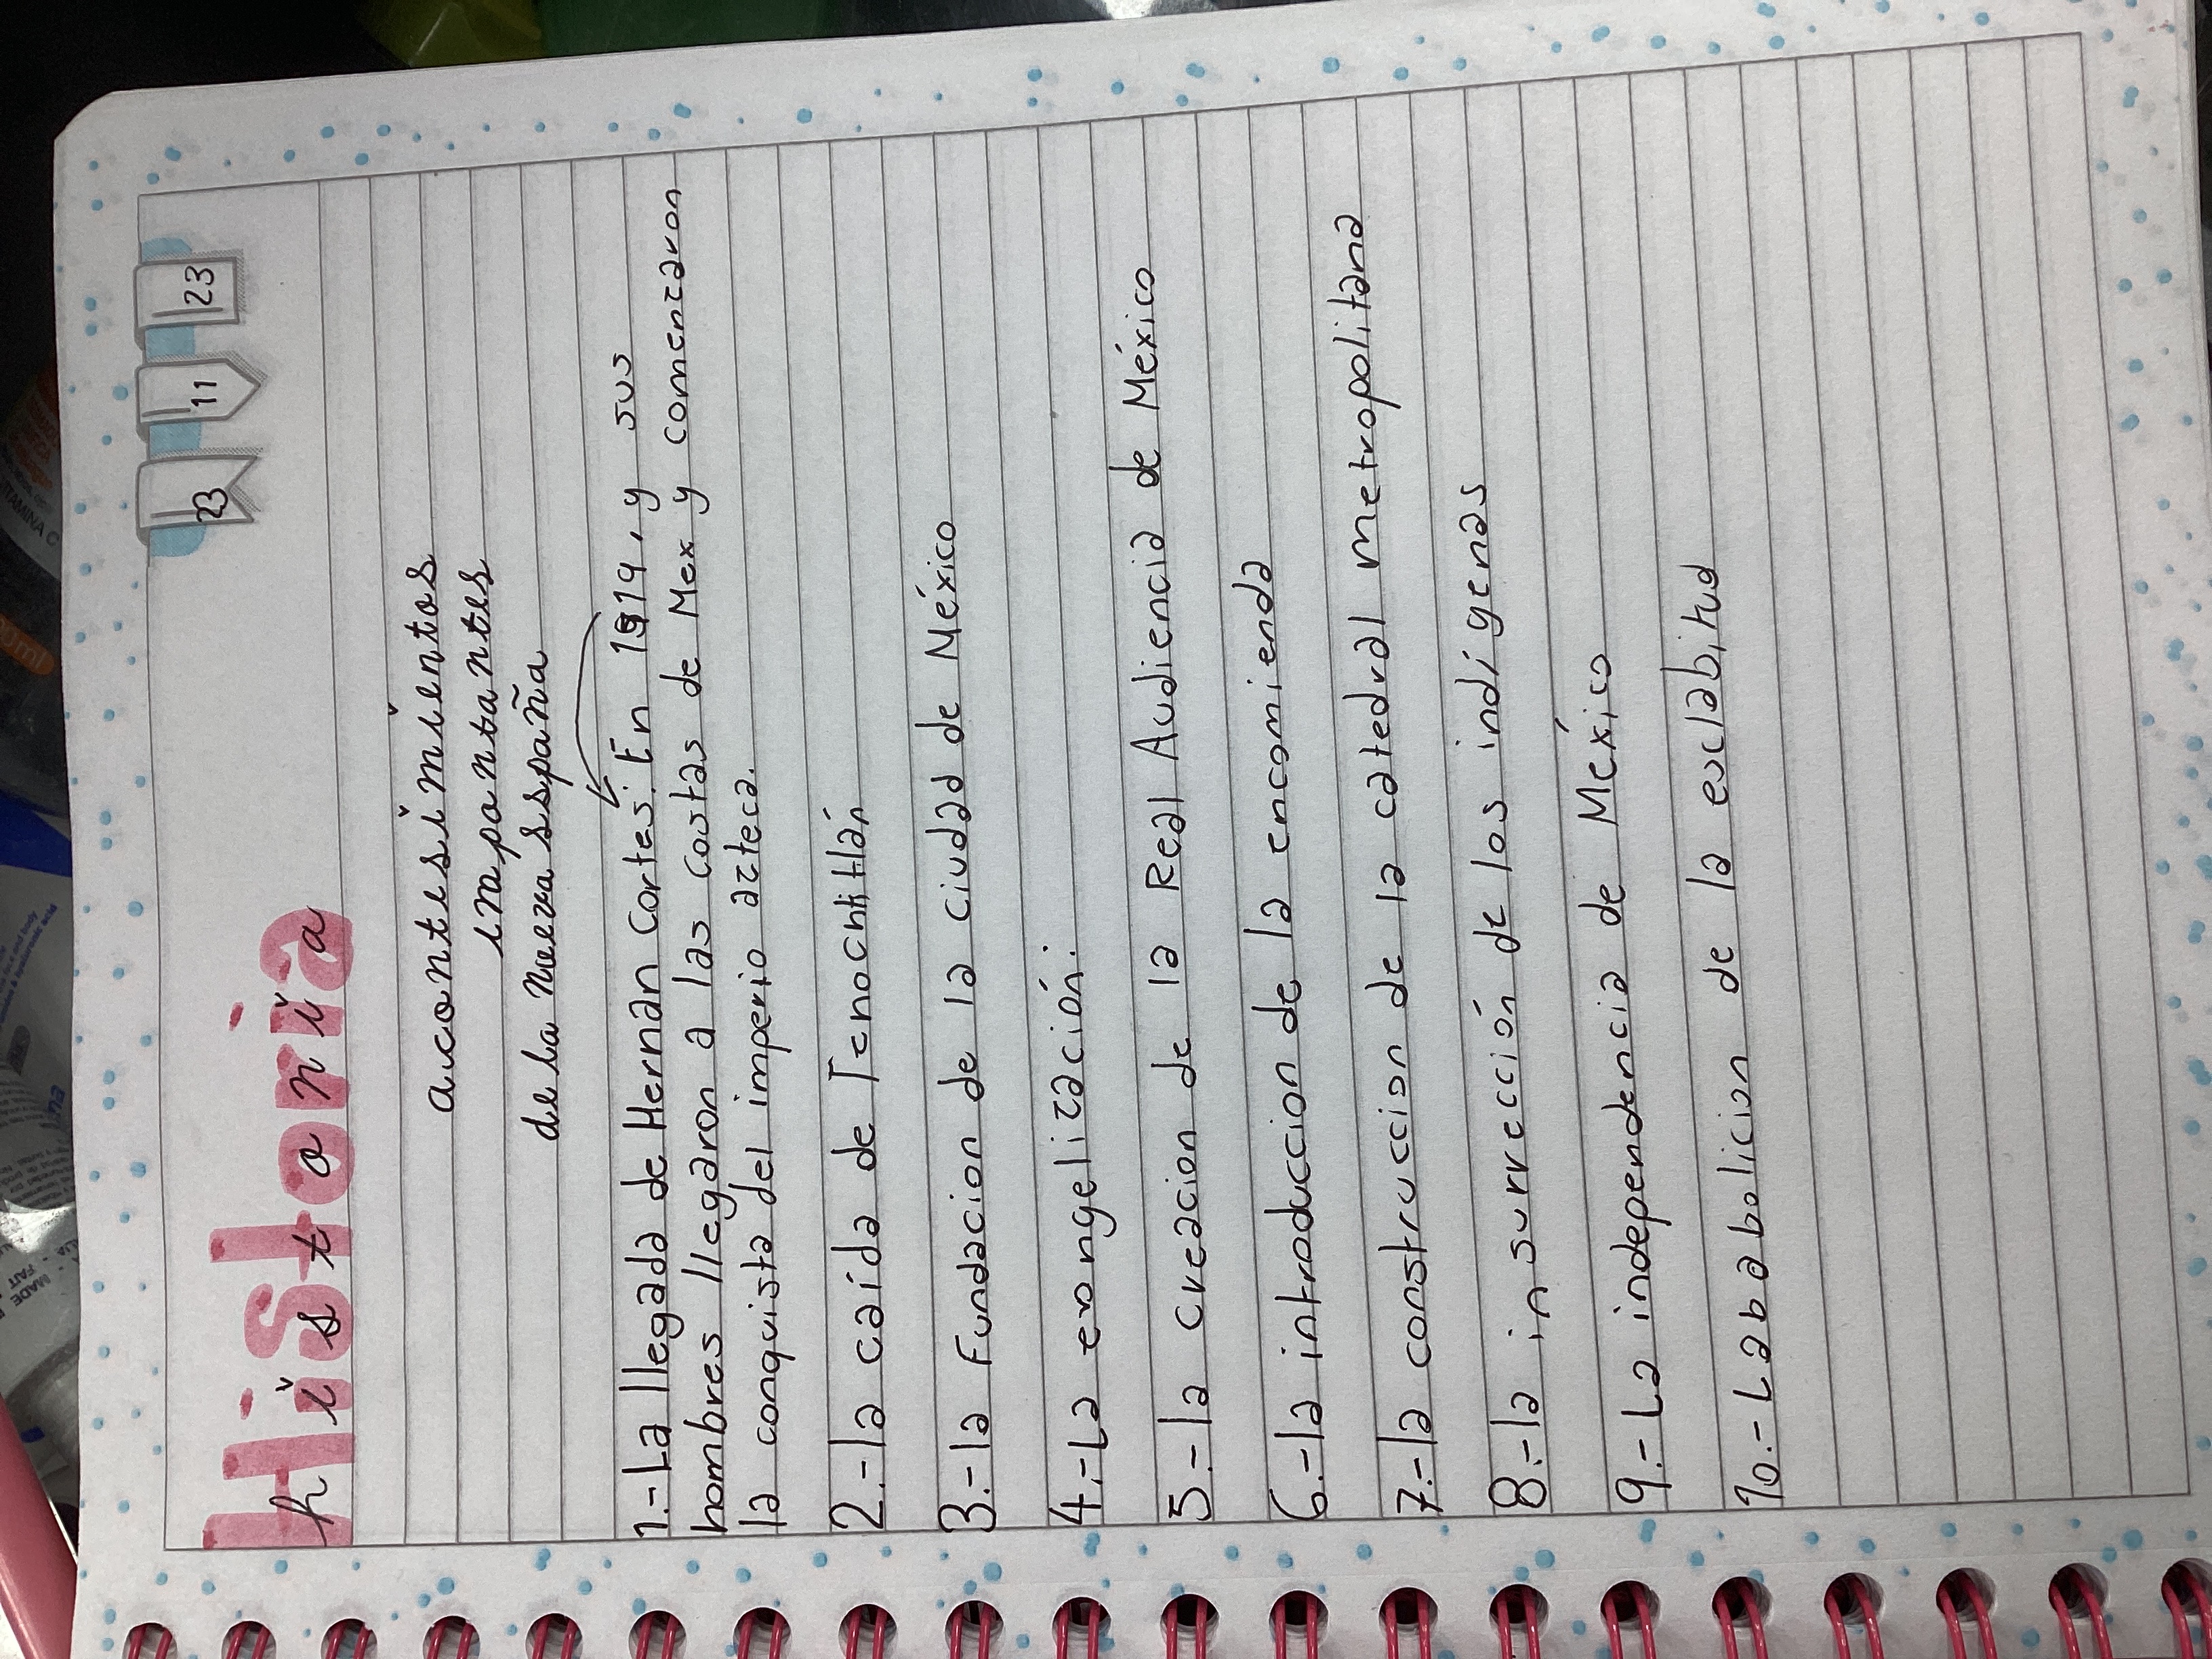 23 11 23
Historia
historia
acontesimientos
importantes
de la nueva españa
1.-La llegada de Hernán Cortés. En 1519, y sus
hombres llegaron a las costas de Mex y comenzaron
la conquista del imperio azteca.
2.-la caída de Tenochtitlán
3.-la Fundacion de la ciudad de México
4.-La evangelización.
5.-la creacion de la Real Audiencia de México
6.-la introduccion de la encomienda
7.-la construccion de la catedral metropolitana
8.-la insurrección de los indígenas
9.-La independencia de México
10.-La babolicion de la esclabitud